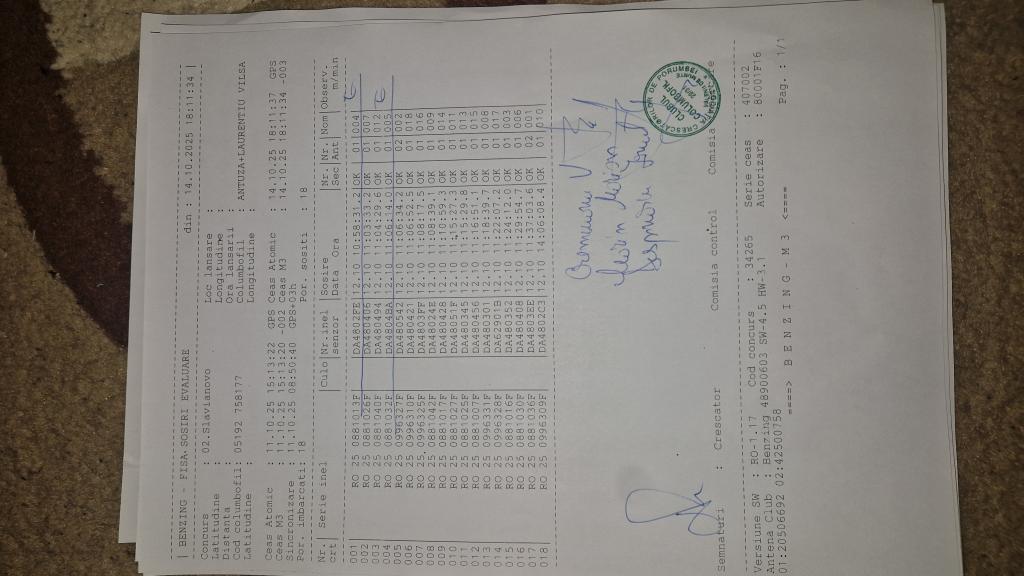 | BENZING - FISA SOSIRI EVALUARE din : 14.10.2025 18:11:34 |
Concurs : 02.Slavianovo Loc lansare :
Latitudine : Longitudine :
Distanta : Ora lansarii :
Cod columbofil: 05192 758177 Columbofil : ANTUZA+LAURENTIU VILSA
Latitudine : Longitudine :
Ceas Atomic : 11.10.25 15:13:22 GPS Ceas Atomic : 14.10.25 18:11:37 GPS
Ceas M3 : 11.10.25 15:13:20 -002 Ceas M3 : 14.10.25 18:11:34 -003
Sincronizare : 11.10.25 08:50:40 GPS+03h
Por. imbarcati: 18 Por. sositi : 18
Nr.| Serie inel |Culo|Nr.inel |Sosire |Nr.|Nr.|Nom|Observ.
crt. |senzor |Data Ora |Sec|Ant| |m/min
001 | RO 25 0881013F |DA4802FE|12.10 10:58:31.2|OK | 01|004|
002 | RO 25 0881026F |DA4804D6|12.10 11:03:33.2|OK | 01|007|
003 | RO 25 0881045F |DA480494|12.10 11:04:29.6|OK | 01|012|
004 | RO 25 0881032F |DA4804BA|12.10 11:06:14.0|OK | 01|005|
005 | RO 25 0996327F |DA480542|12.10 11:06:34.2|OK | 02|002|
006 | RO 25 0996310F |DA480421|12.10 11:06:52.5|OK | 01|018|
007 | RO 25 0996325F |DA4803FF|12.10 11:08:17.5|OK | 01|016|
008 | RO 25 0881042F |DA48024E|12.10 11:08:39.1|OK | 01|009|
009 | RO 25 0881017F |DA480428|12.10 11:10:59.3|OK | 01|014|
010 | RO 25 0881027F |DA48051F|12.10 11:15:27.3|OK | 01|011|
011 | RO 25 0881025F |DA480345|12.10 11:15:29.8|OK | 01|013|
012 | RO 25 0881007F |DA480456|12.10 11:16:51.1|OK | 01|015|
013 | RO 25 0996331F |DA480301|12.10 11:18:39.7|OK | 01|008|
014 | RO 25 0996328F |DA62901B|12.10 11:22:07.2|OK | 01|017|
015 | RO 25 0881016F |DA480352|12.10 11:24:12.0|OK | 01|003|
016 | RO 25 0881030F |DA480408|12.10 11:29:54.7|OK | 01|006|
017 | RO 25 0881036F |DA4803EE|12.10 11:37:03.6|OK | 02|001|
018 | RO 25 0996309F |DA4802C3|12.10 14:06:08.4|OK | 01|010|
Semnaturi : Crescator Comisia control Comisia
Versiune SW : RO-1.17 Cod concurs : 34265 Serie ceas : 407002
Antena Club : Benzing 48900603 SW-4.5 HW-3.1 Autorizare : 80001F16
01:20506692 02:42500758
====> B E N Z I N G - M 3 <==== Pag. : 1/1